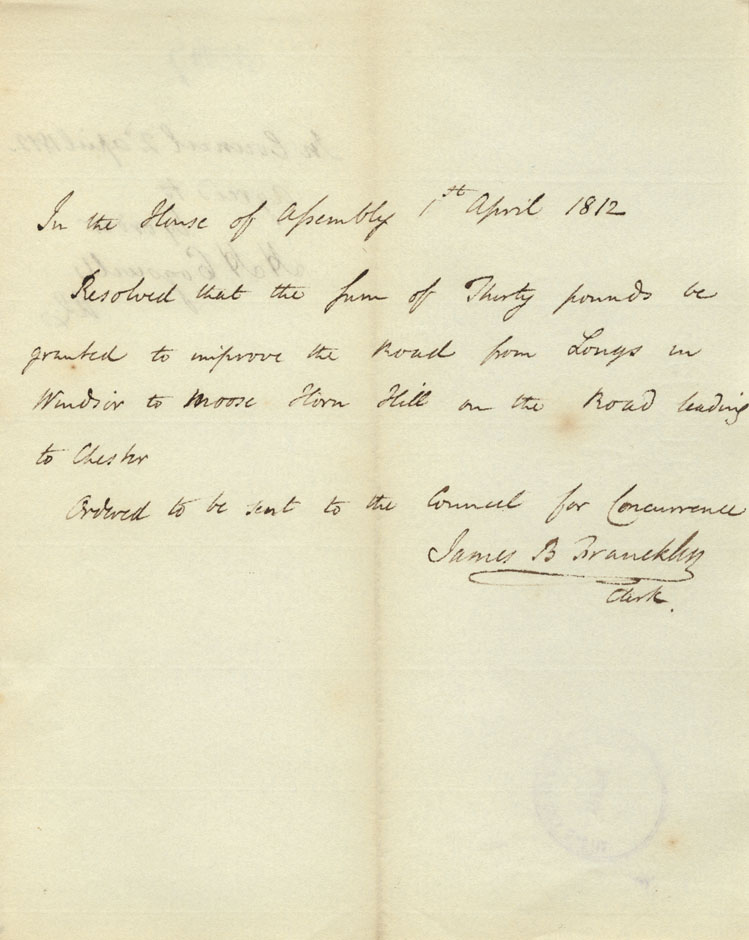 In the House of Assembly 1th April 1812
Resolved that the Sum of Thirty pounds be
granted to improve the Road from Longs in
Windsor to Moose Horn Hill on the Road leading
to Chester
Ordered to be sent to the Council for Concurrence
James B Francklin
Clerk.
In Council 2d April 1812.